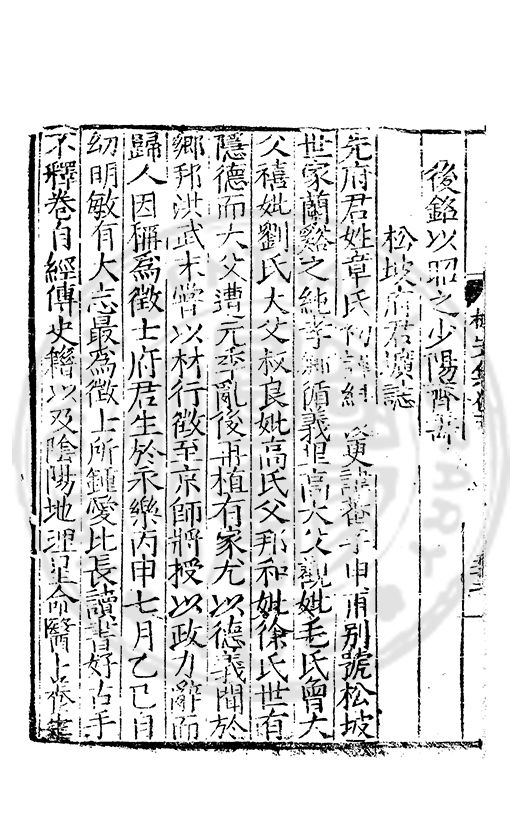 後銘以昭之少陽齊壽
松坡府君壙誌
先府君姓章氏初諱 更諱 字申甫別號松坡
世家蘭谿之純孝鄉循義里高大父 妣毛氏曾大
父禧妣劉氏大父叔良妣高氏父邦和妣徐氏世有
隱德而大父遭元季亂後再植有家尤以德義聞於
鄉邦洪武末嘗以材行徵至京師將授以政力辭而
歸人因稱為徵士府君生於永樂丙申七月乙巳自
幼明敏有大志最為徵士所鍾愛比長讀書好古手
不釋卷自經傳史籍以及陰陽地理星命醫卜 筭